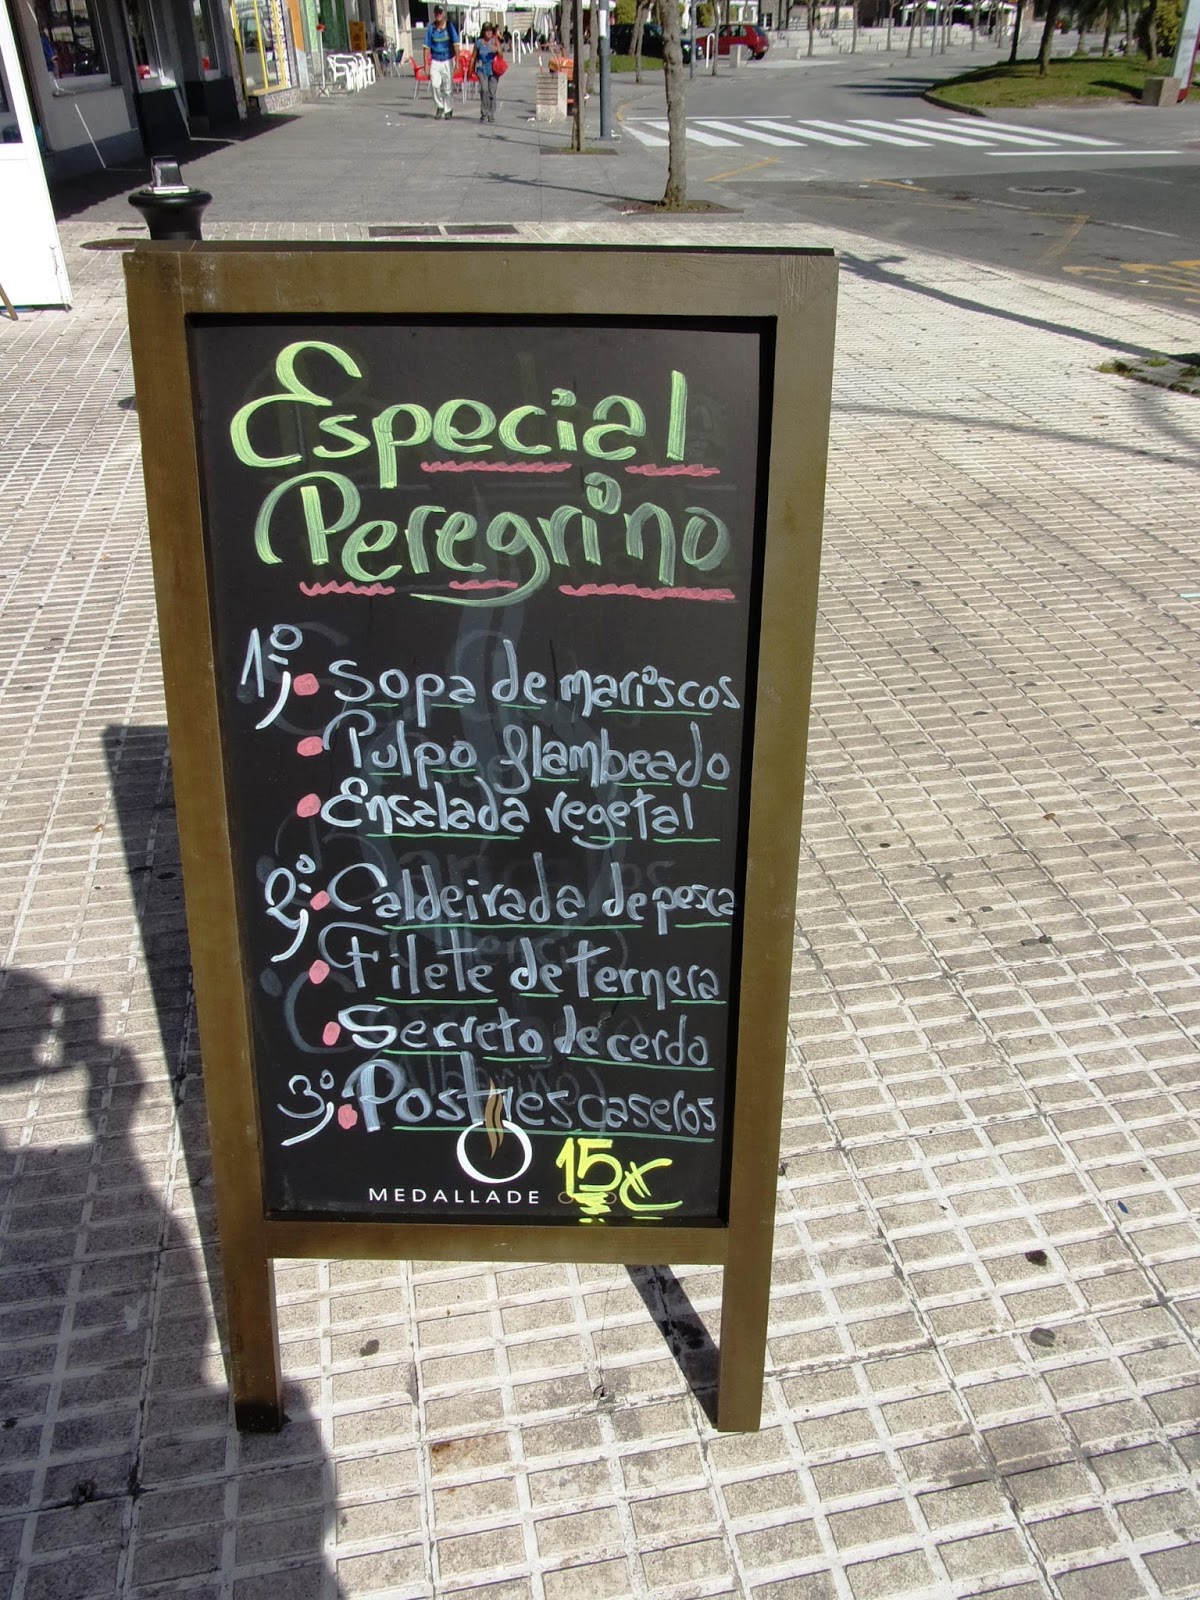 Especial
Peregrino
1º, • Sopa de mariscos
• Pulpo flambeado
• Ensalada vegetal
2º, • Caldeirada de pesca
• Filete de ternera
• Secreto de cerdo
3º, • Postres caseros
15€
MEDALLA DE ORO